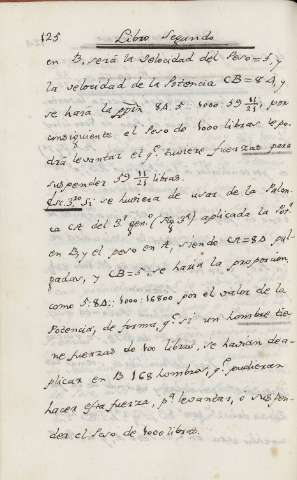 125
Libro Segundo
en B, será la velocidad del Peso = 5. y
la velocidad de la Potencia CB = 84, y
se hará la 84. 5 : 1000. 59 11/21, por
consiguiente el Peso de 1000 libras le po-
drá levantar el q.e tuviere fuerzas para
suspender 59 11/21 libras.
Si se huviera de usar de la Palan-
ca CA del 3.º gen.º (fig. 3ª) aplicada la Pot.ª
en B, y el peso en A, siendo CA = 84 pul-
gadas, y CB = 5. se haría la proporcion,
como 5. 84 : 1000. 16800 por el valor de la
Potencia, de forma, q.e si un hombre tie-
ne fuerzas de 100 libras, se havian de a-
plicar en B 168 hombres, q.e pudieran
hacer esta fuerza, p.ª levantar, o suspen-
der el Peso de 1000 libras.